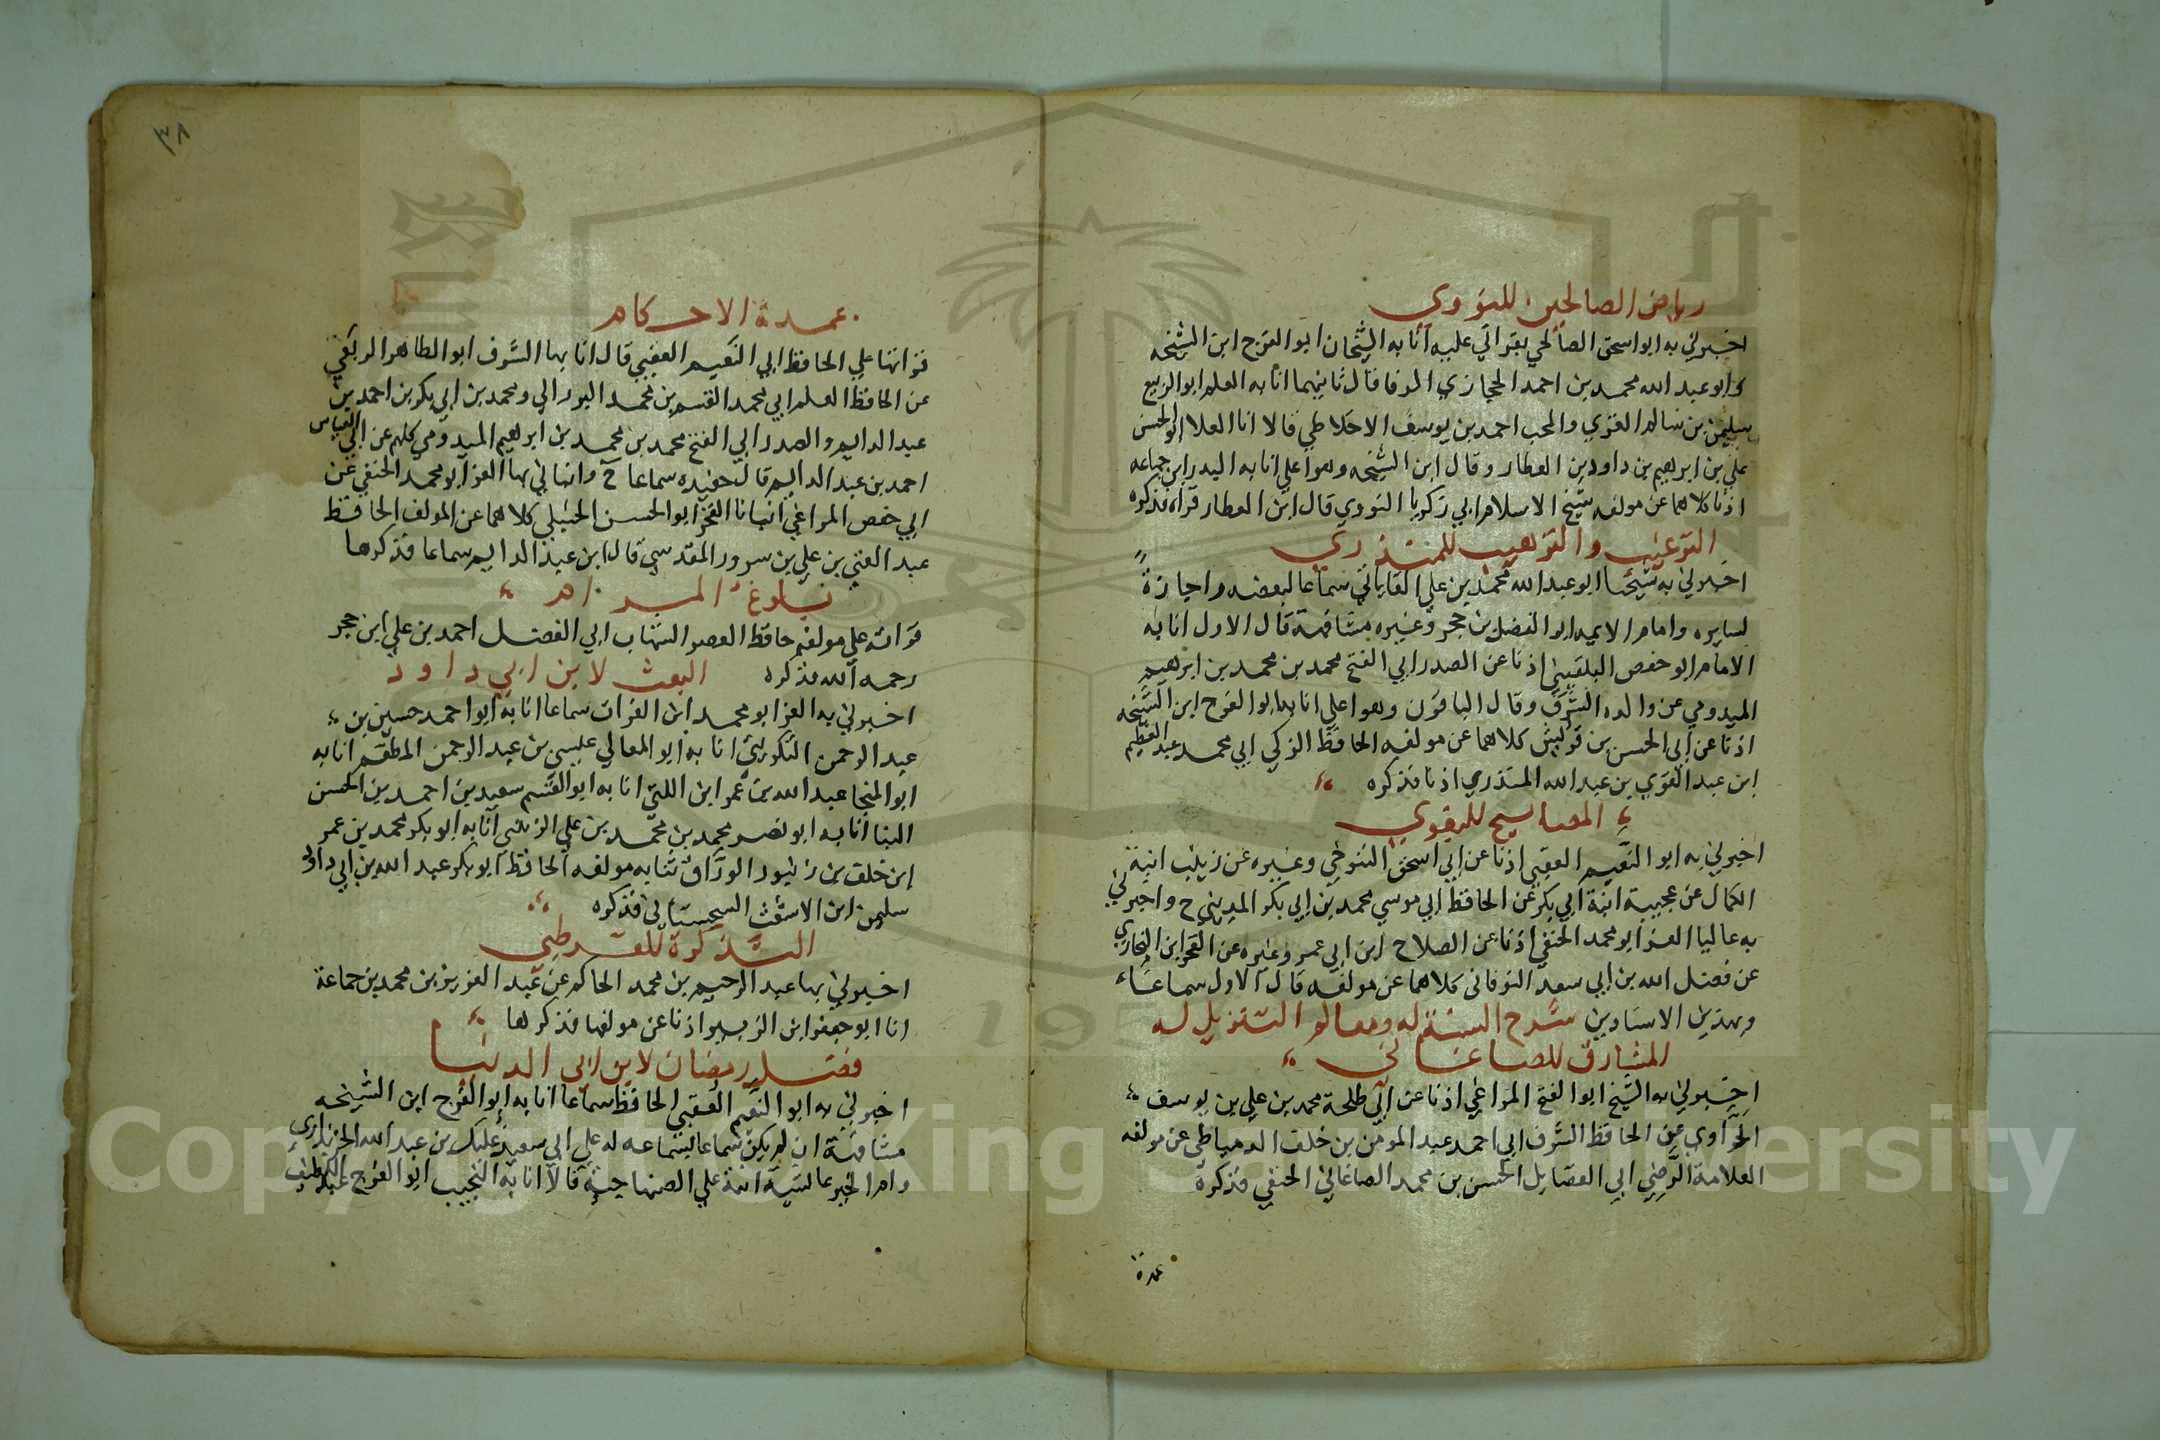 رياض الصالحين للنووي
اخبرني به ابو اسحق الصالحي بقراتي عليه انا به الشيخان ابو الفرج ابن الشيخه
وابو عبد الله محمد بن احمد الحجازي الرفا قال ثانيهما انا به العلم ابو الربيع
سليمن بن سالم الغزي والمحب احمد بن يوسف الاخلاطي قالا انا العلا ابو الحسن
علي بن ابرهيم بن داود بن العطار وقال ابن الشيخه وهو اعلي انا به البدر ابن جماعه
اذنا كلاهما عن مولفه شيخ الاسلام ابي زكريا النووي قال ابن العطار قراه فذكره
الترغيب والترهيب للمنذري
اخبرني به شيخنا ابو عبد الله محمد بن علي القاياتي سماعا لبعضه واجازة
لسايره وامام الايمه ابو الفضل بن حجر وغيره مشافهة قال الاول انا به
الامام ابو حفص البلقيني اذنا عن الصدر ابي الفتح محمد بن محمد بن ابرهيم
الميدومي عن والده الشرف وقال الباقون وهو اعلي انا به ابو الفرج ابن الشيخه
اذنا عن ابي الحسن بن قريش كلاهما عن مولفه الحافظ الزكي ابي محمد عبد العظيم
ابن عبد القوي بن عبد الله المنذري اذنا فذكره
المصابيح للبغوي
اخبرني به ابو النعيم العقبي اذنا عن ابي اسحق التنوخي وغيره عن زينب ابنة
الكمال عن عجيبة ابنة ابي بكر عن الحافظ ابي موسي محمد بن ابي بكر المديني ح واخبرني
به عاليا العز ابو محمد الحنفي اذنا عن الصلاح ابن ابي عمر وغيره عن الفخر ابن البخاري
عن فضل الله بن ابي سعد النوقاني كلاهما عن مولفه قال الاول سماعا
وبهذين الاسنادين شرح السنة له ومعالم التنزيل له
المشارق للصاغاني
اخبرني به الشيخ ابو الفتح المراغي اذنا عن ابي طلحة محمد بن علي بن يوسف
الحراوي عن الحافظ الشرف ابي احمد عبد المومن بن خلف الدمياطي عن مولفه
العلامة الرضي ابي الفضايل الحسن بن محمد الصاغاني الحنفي فذكره
عمدة
٣٨
عمدة الاحكام
قراتها علي الحافظ ابي النعيم العقبي قال انا بها الشرف ابو الطاهر الربعي
عن الحافظ العلم ابي محمد القسم بن محمد البرزالي ومحمد بن ابي بكر بن احمد بن
عبد الدايم والصدر ابي الفتح محمد بن محمد بن ابرهيم الميدومي كلهم عن ابي العباس
احمد بن عبد الدايم قال حفيده سماعا ح وانباني بها العز ابو محمد الحنفي عن
ابي حفص المراغي انبانا الفخر ابو الحسن الحنبلي كلاهما عن المولف الحافظ
عبد الغني بن علي بن سرور المقدسي قال ابن عبد الدايم سماعا فذكرها
بلوغ المرام
قراته علي مولفه حافظ العصر الشهاب ابي الفضل احمد بن علي ابن حجر
رحمه الله فذكره البعث لابن ابي داود
اخبرني به العز ابو محمد ابن الفرات سماعا انا به ابو احمد حسين بن
عبد الرحمن التكريتي انا به ابو المعالي عيسي بن عبد الرحمن المطعم انا به
ابو المنجا عبد الله بن عمر ابن اللتي انا به ابو القسم سعيد بن احمد بن الحسن
البنا انا به ابو نصر محمد بن محمد بن علي الزينبي انا به ابو بكر محمد بن عمر
ابن خلف بن زنبور الوراق ثنا به مولفه الحافظ ابو بكر عبد الله بن ابي داود
سليمن ابن الاشعث السجستاني فذكره
التذكرة للقرطبي
اخبرني بها عبد الرحيم بن محمد الحاكم عن عبد العزيز بن محمد بن جماعة
انا ابو جعفر ابن الزبير اذنا عن مولفها فذكرها
فضل رمضان لابن ابي الدنيا
اخبرني به ابو النعيم العقبي الحافظ سماعا انا به ابو الفرج ابن الشيخه
مشافهة ان لم يكن سماعا بسماعه له علي ابي سعيد عليك بن عبد الله الخزنداري
وام الخير عايشة ابنة علي الصنهاجية قالا انا به النجيب ابو الفرج عبد اللطيف
Copyright © King Saud University